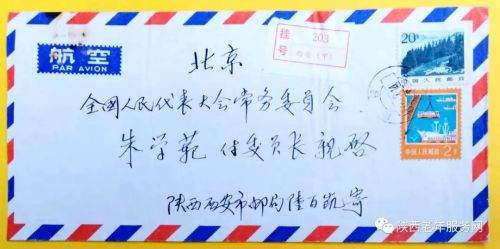 航空
PAR AVION
挂 203
号
20分
中国人民邮政
北京
全国人民代表大会常务委员会
朱学范 付委员长亲启
中国人民邮政
陕西西安市邮局陆百凯寄
陕西老年服务网